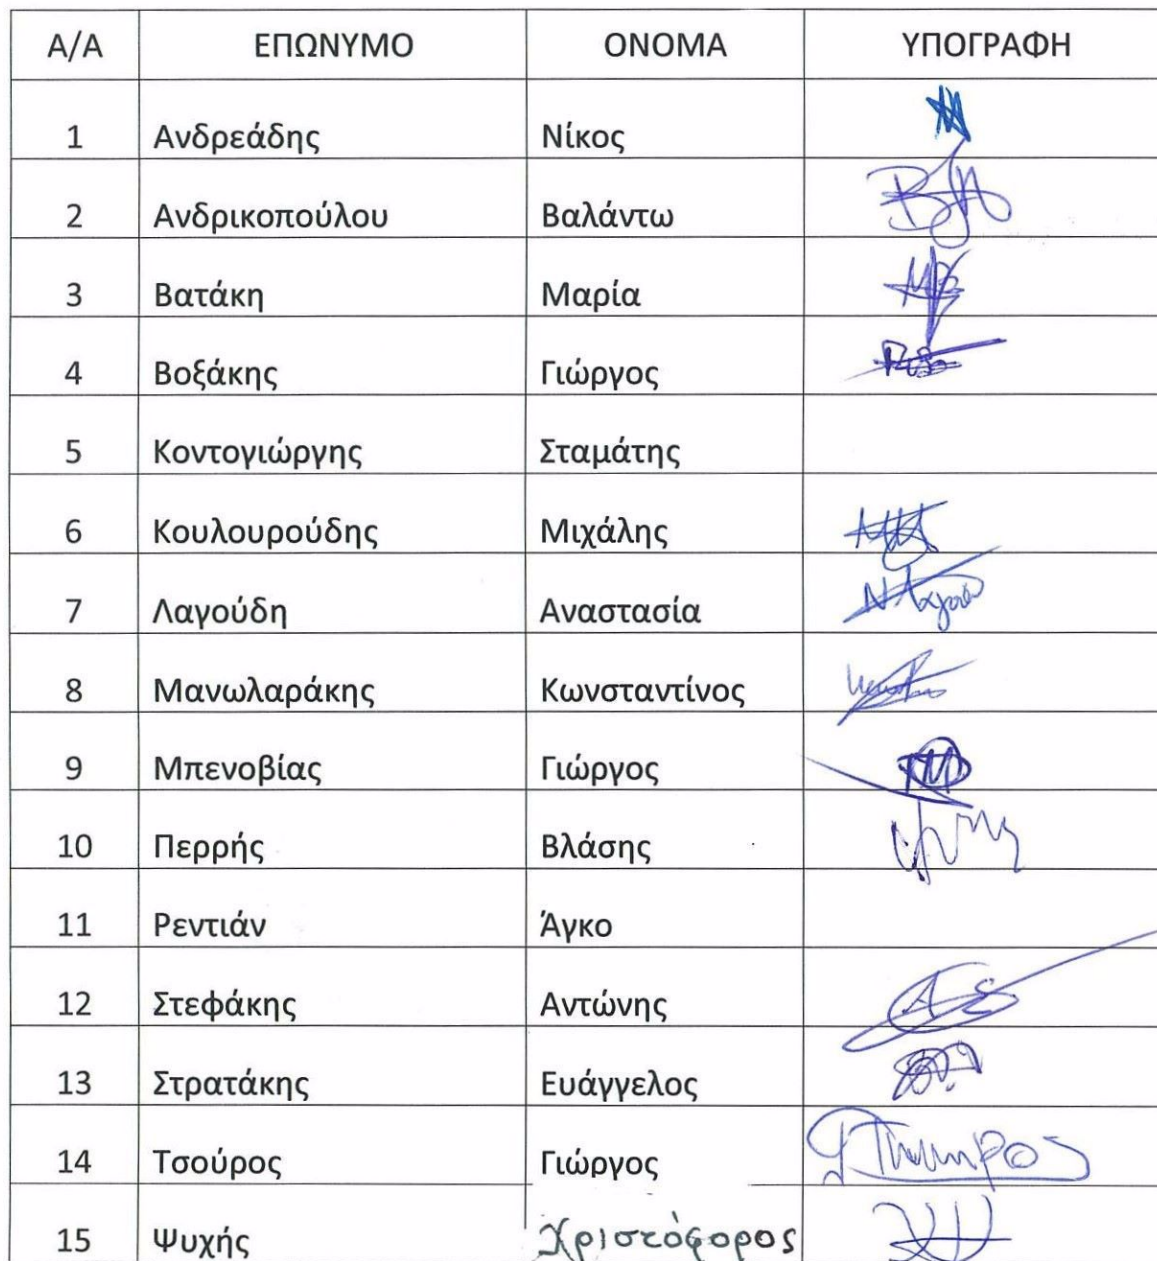 Α/Α ΕΠΩΝΥΜΟ ΟΝΟΜΑ ΥΠΟΓΡΑΦΗ
1 Ανδρεάδης Νίκος
2 Ανδρικοπούλου Βαλάντω
3 Βατάκη Μαρία
4 Βοξάκης Γιώργος
5 Κοντογιώργης Σταμάτης
6 Κουλουρούδης Μιχάλης
7 Λαγούδη Αναστασία
8 Μανωλαράκης Κωνσταντίνος
9 Μπενοβίας Γιώργος
10 Περρής Βλάσης
11 Ρεντιάν Άγκο
12 Στεφάκης Αντώνης
13 Στρατάκης Ευάγγελος
14 Τσούρος Γιώργος
15 Ψυχής Χριστόφορος